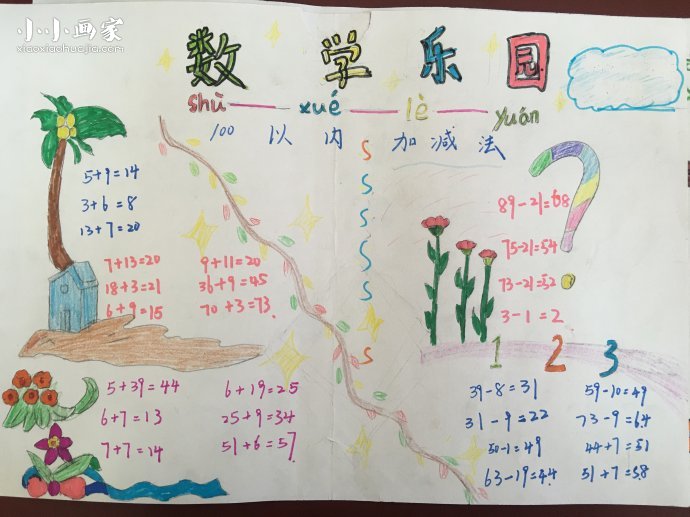 小小画家
xiaoxiaohuajia.com
数 学 乐 园
shù xué lè yuán
100 以 内 加 减 法
5+9=14
3+6=8
13+7=20
7+13=20
18+3=21
6+9=15
9+11=20
36+9=45
70+3=73
S
S
S
S
S
S
S
89-21=68
75-21=54
73-21=52
3-1=2
?
1 2 3
5+39=44
6+7=13
7+7=14
6+19=25
25+9=34
51+6=57
39-8=31
31-9=22
50-1=49
63-19=44
59-10=49
73-9=64
44+7=51
51+7=58